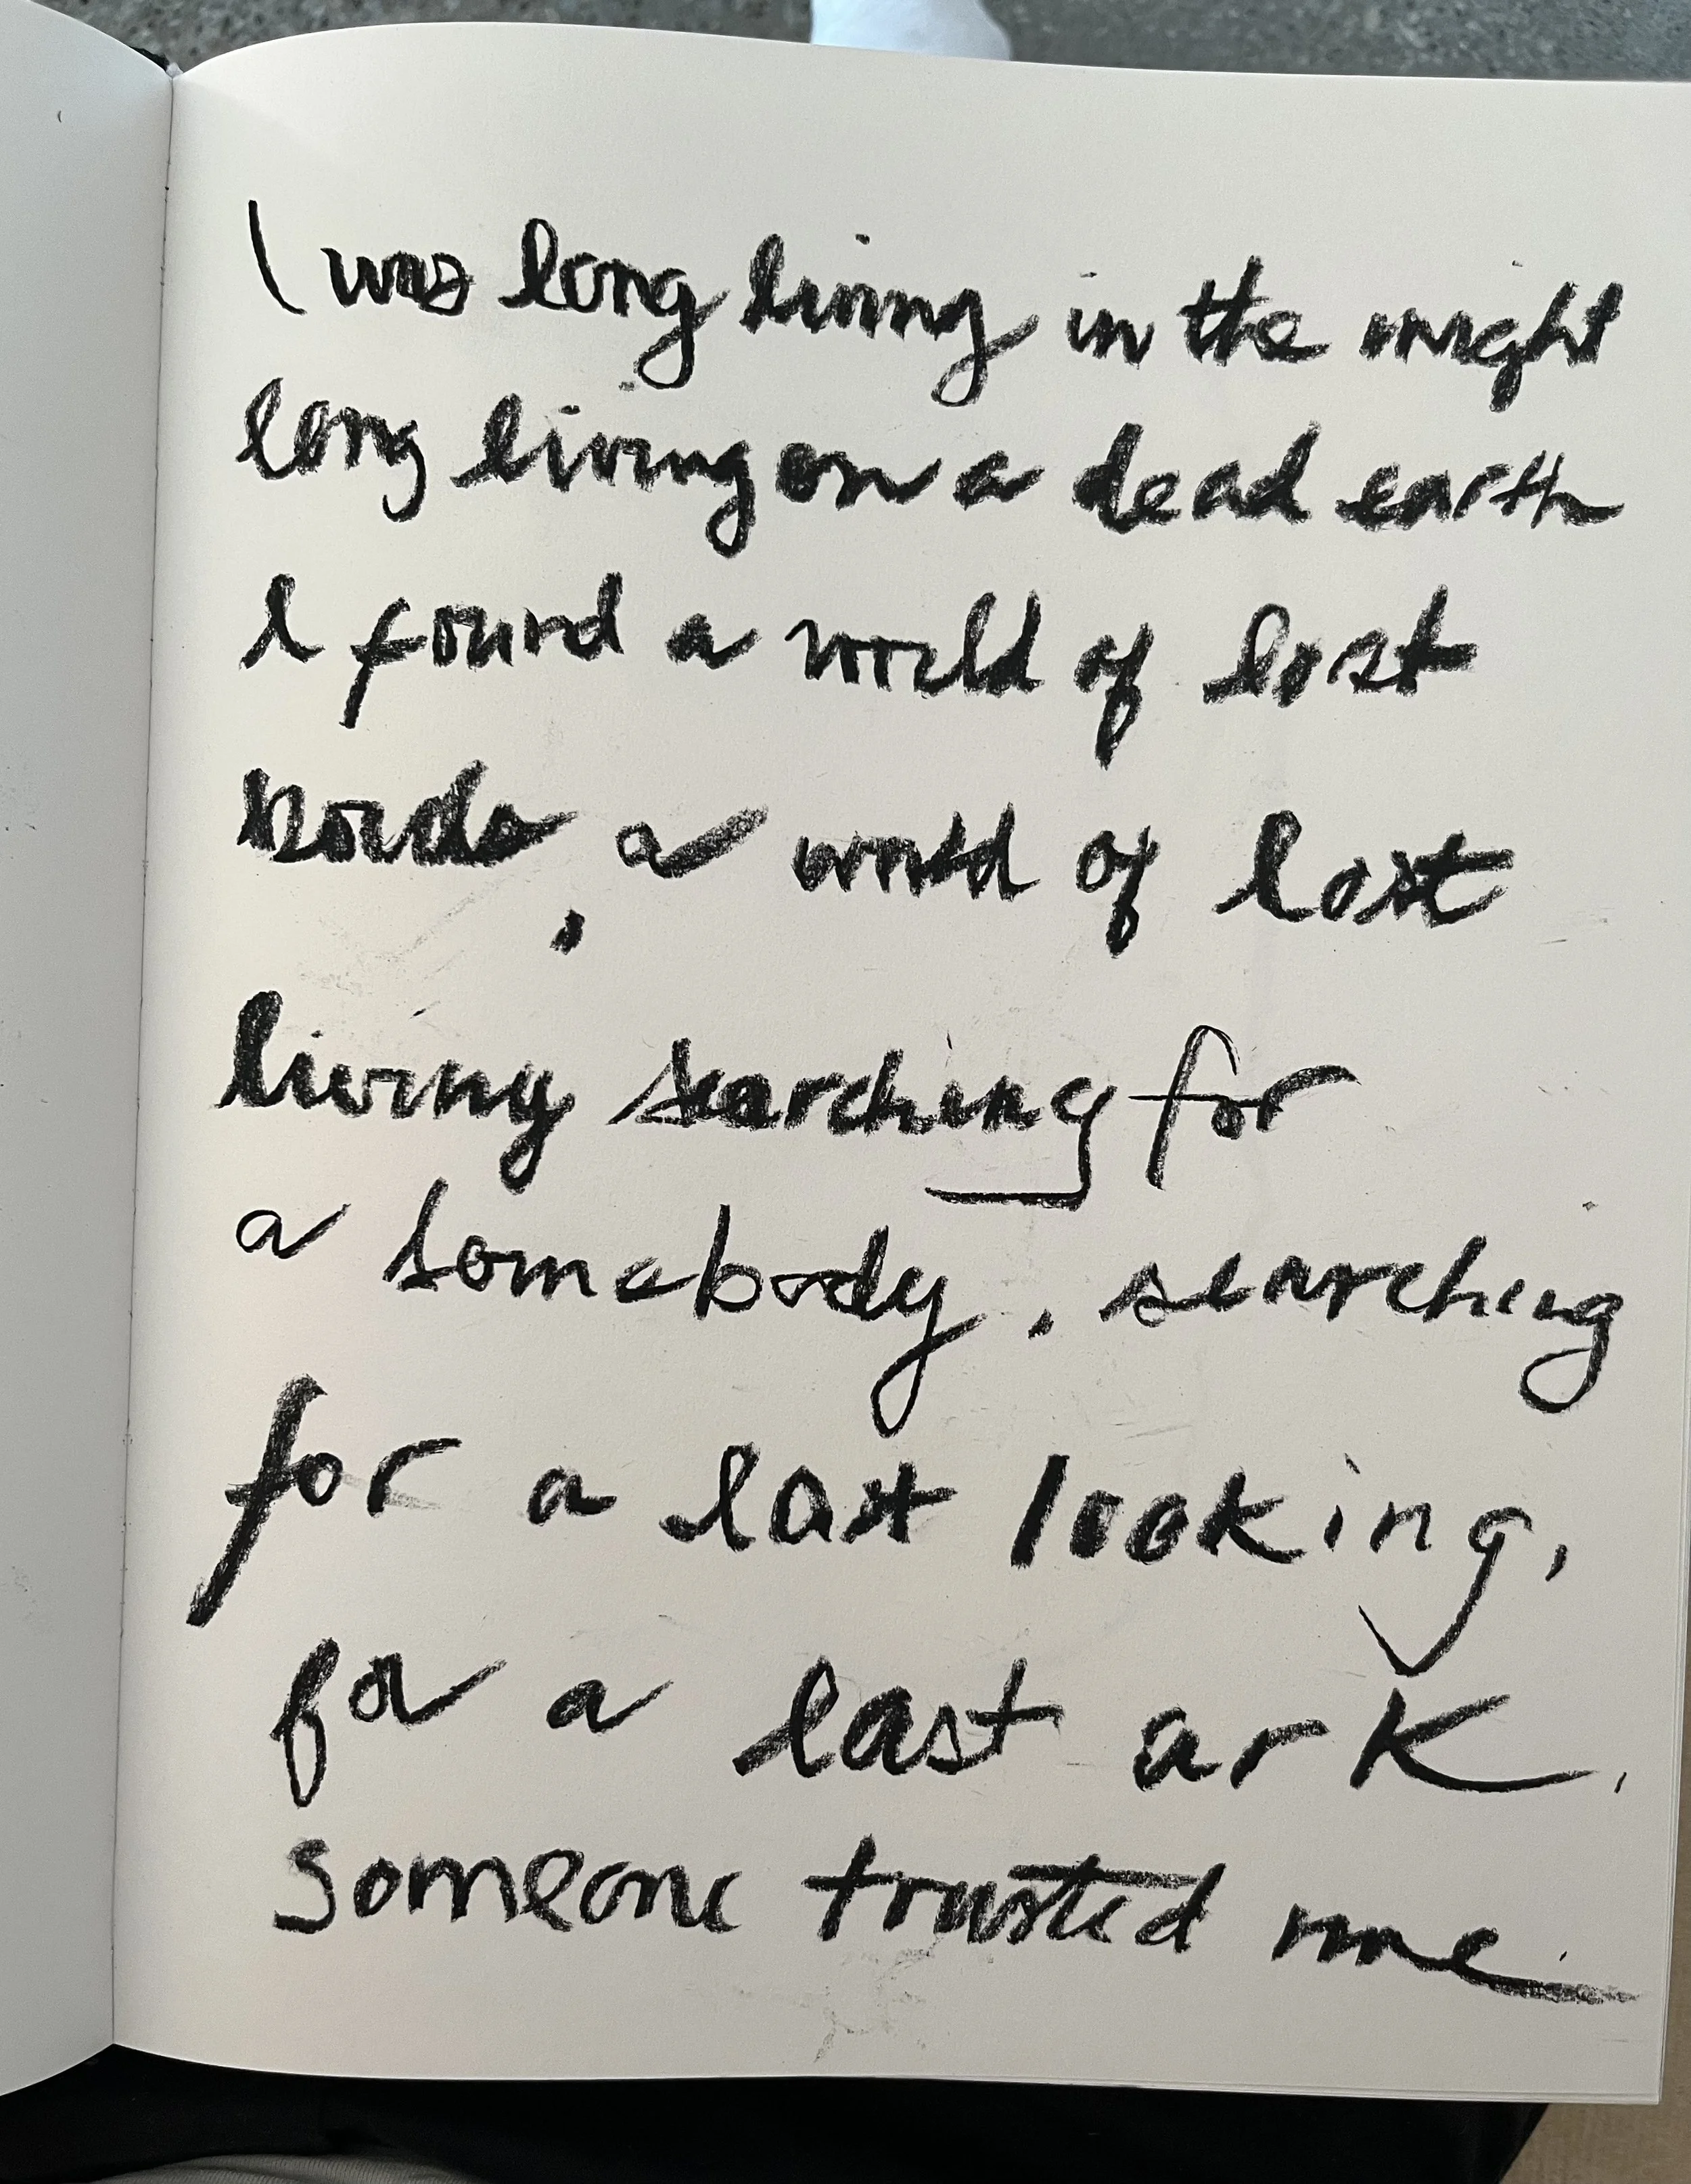 I was long living in the night
long living on a dead earth
I found a world of lost
words, a world of lost
living searching for
a somebody, searching
for a last looking,
for a last ark.
someone trusted me.